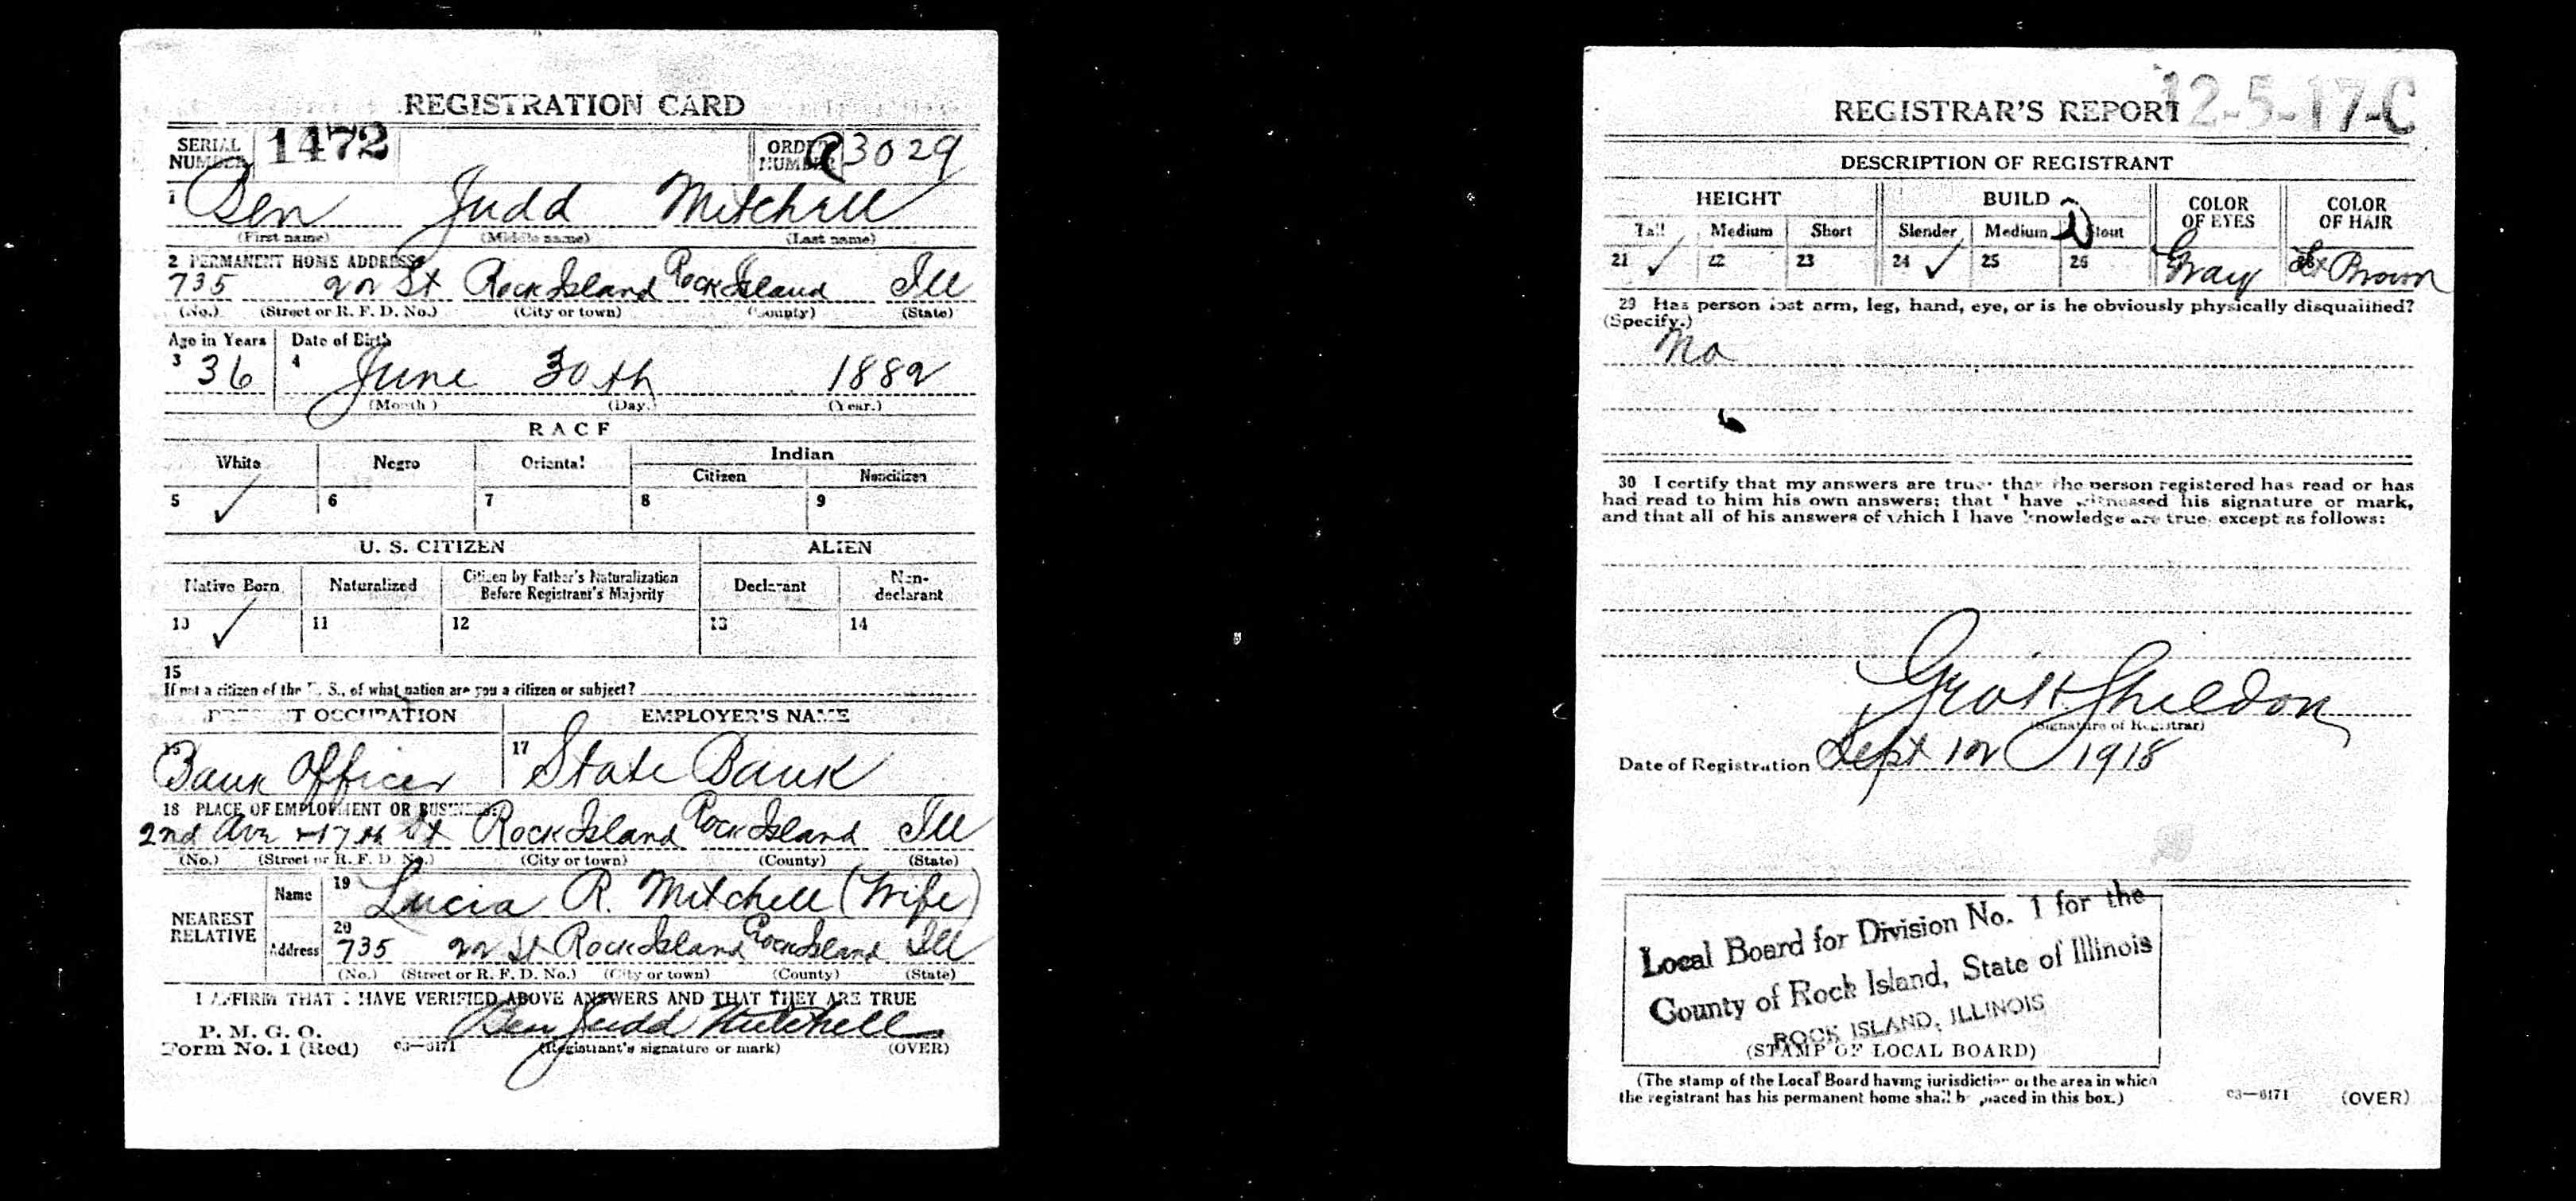 REGISTRATION CARD
SERIAL NUMBER 1472 ORDER NUMBER A3029
1 Ben Judd Mitchell
(First name) (Middle name) (Last name)
2 PERMANENT HOME ADDRESS
735 22 St Rock Island Rock Island Ill
(No.) (Street or R. F. D. No.) (City or town) (County) (State)
Age in Years Date of Birth
3 36 4 June 30th 1882
(Month) (Day.) (Year.)
RACE
White Negro Oriental Indian
Citizen Noncitizen
5 ✓ 6 7 8 9
U. S. CITIZEN ALIEN
Native Born Naturalized Citizen by Father's Naturalization Before Registrant's Majority Declarant Non-declarant
10 ✓ 11 12 13 14
15
If not a citizen of the U. S., of what nation are you a citizen or subject?
PRESENT OCCUPATION EMPLOYER'S NAME
16 Bank Officer 17 State Bank
18 PLACE OF EMPLOYMENT OR BUSINESS:
2nd Ave + 17th St Rock Island Rock Island Ill
(No.) (Street or R. F. D. No.) (City or town) (County) (State)
NEAREST RELATIVE
Name 19 Lucia R. Mitchell (Wife)
Address 20 735 22 St Rock Island Rock Island Ill
(No.) (Street or R. F. D. No.) (City or town) (County) (State)
I AFFIRM THAT I HAVE VERIFIED ABOVE ANSWERS AND THAT THEY ARE TRUE
P. M. G. O.
Form No. 1 (Red) 03—6171 Ben Judd Mitchell
(Registrant's signature or mark) (OVER)
REGISTRAR'S REPORT 12-5-17-C
DESCRIPTION OF REGISTRANT
HEIGHT BUILD COLOR OF EYES COLOR OF HAIR
Tall Medium Short Slender Medium Stout
21 ✓ 22 23 24 ✓ 25 26 Gray Lt Brown
29 Has person lost arm, leg, hand, eye, or is he obviously physically disqualified?
(Specify.)
No
30 I certify that my answers are true; that the person registered has read or has
had read to him his own answers; that I have witnessed his signature or mark,
and that all of his answers of which I have knowledge are true, except as follows:
Sheldon
(Signature of Registrar)
Date of Registration Sept 12 1918
Local Board for Division No. 1 for the
County of Rock Island, State of Illinois
ROCK ISLAND, ILLINOIS
(STAMP OF LOCAL BOARD)
(The stamp of the Local Board having jurisdiction of the area in which
the registrant has his permanent home shall be placed in this box.)
03—6171 (OVER)